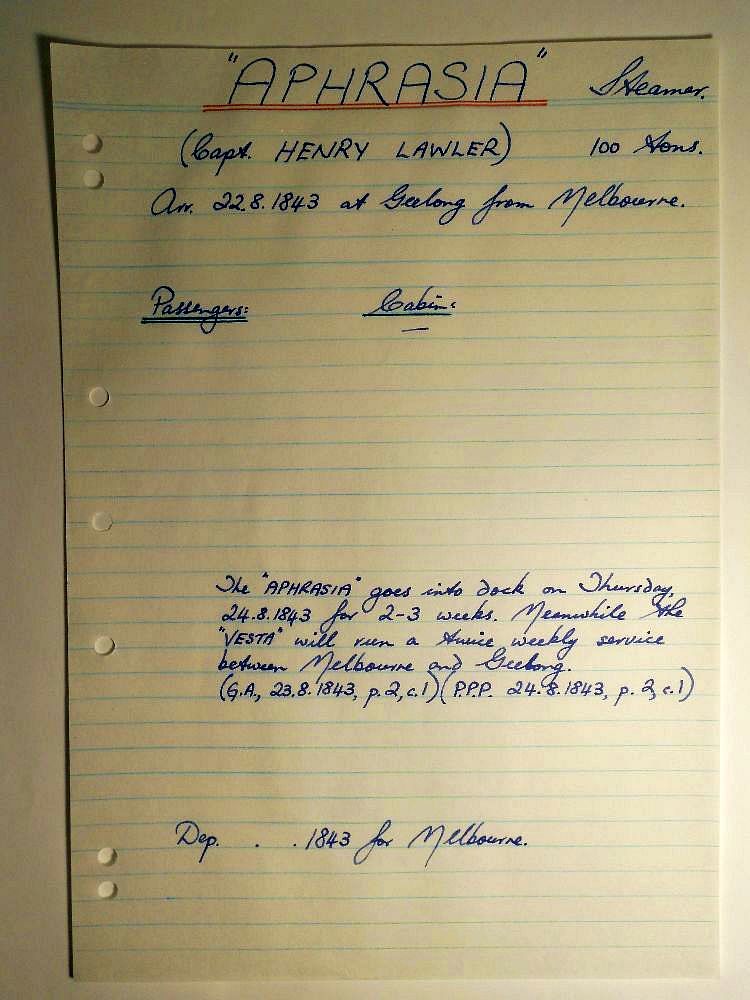 "APHRASIA" Steamer.
(Capt. HENRY LAWLER) 100 tons.
Arr. 22.8.1843 at Geelong from Melbourne.
Passengers: Cabin:
—
The "APHRASIA" goes into dock on Thursday,
24.8.1843 for 2-3 weeks. Meanwhile the
"VESTA" will run a twice weekly service
between Melbourne and Geelong.
(G.A., 23.8.1843, p.2, c.1) (P.P.P. 24.8.1843, p.2, c.1)
Dep. . . 1843 for Melbourne.